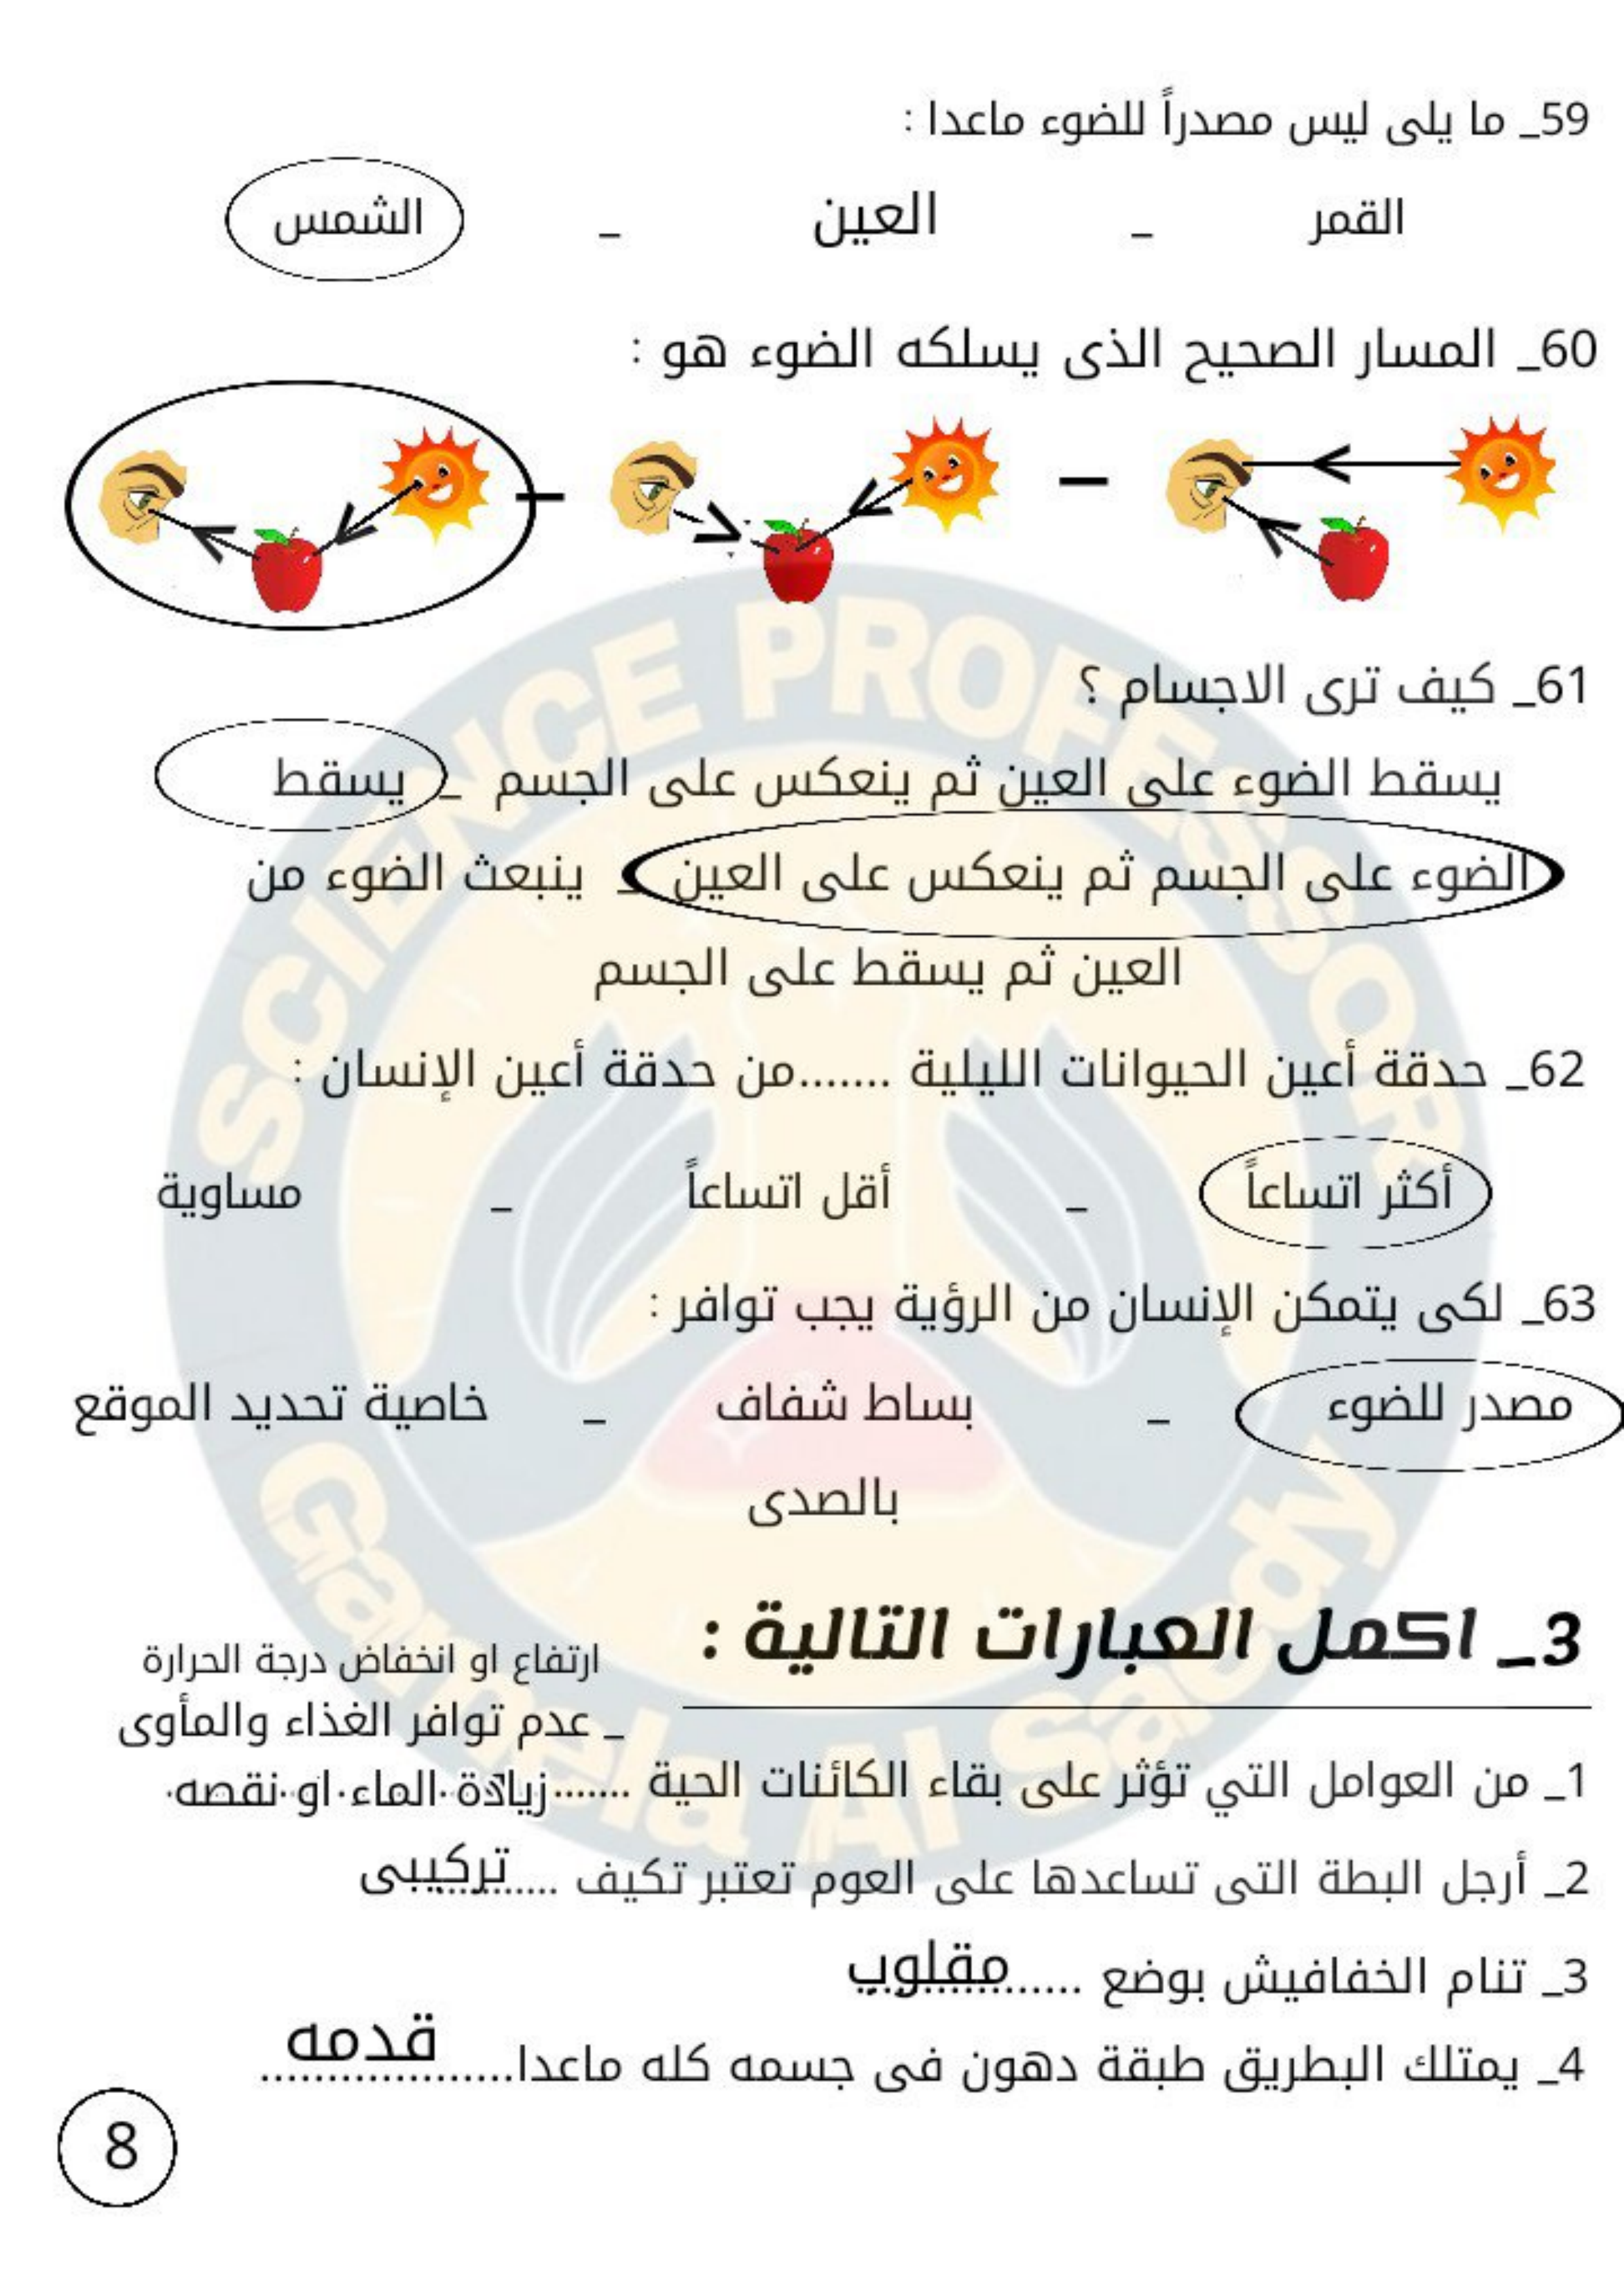 59_ ما يلى ليس مصدراً للضوء ماعدا :
القمر _ العين _ الشمس
60_ المسار الصحيح الذى يسلكه الضوء هو :
61_ كيف ترى الاجسام ؟
يسقط الضوء على العين ثم ينعكس على الجسم _ يسقط
الضوء على الجسم ثم ينعكس على العين _ ينبعث الضوء من
العين ثم يسقط على الجسم
62_ حدقة أعين الحيوانات الليلية .......من حدقة أعين الإنسان :
أكثر اتساعاً _ أقل اتساعاً _ مساوية
63_ لكى يتمكن الإنسان من الرؤية يجب توافر :
مصدر للضوء _ بساط شفاف _ خاصية تحديد الموقع
بالصدى
3_ اكمل العبارات التالية :
ارتفاع او انخفاض درجة الحرارة
_ عدم توافر الغذاء والمأوى
1_ من العوامل التي تؤثر على بقاء الكائنات الحية .......زيادة الماء او نقصه
2_ أرجل البطة التى تساعدها على العوم تعتبر تكيف ............تركيبى
3_ تنام الخفافيش بوضع ................مقلوب
4_ يمتلك البطريق طبقة دهون فى جسمه كله ماعدا...................قدمه
8
SCIENCE PROFESSOR
Gamela Al Saedy